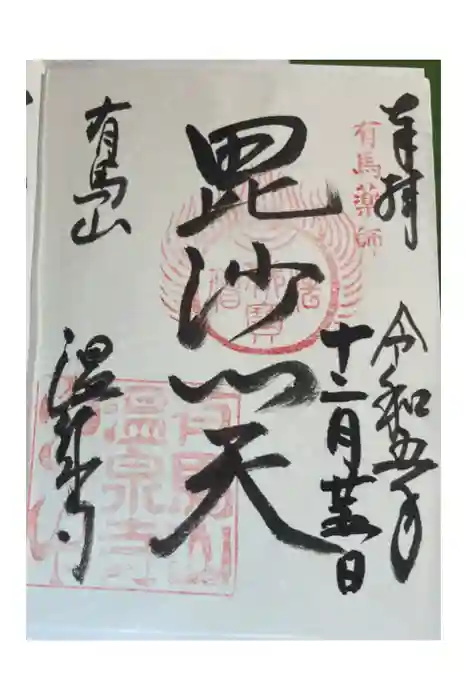 奉拝
有馬薬師
令和五年
十二月廿五日
毘沙門天
佛法僧寳
有馬山
温泉寺
有馬山
温泉寺